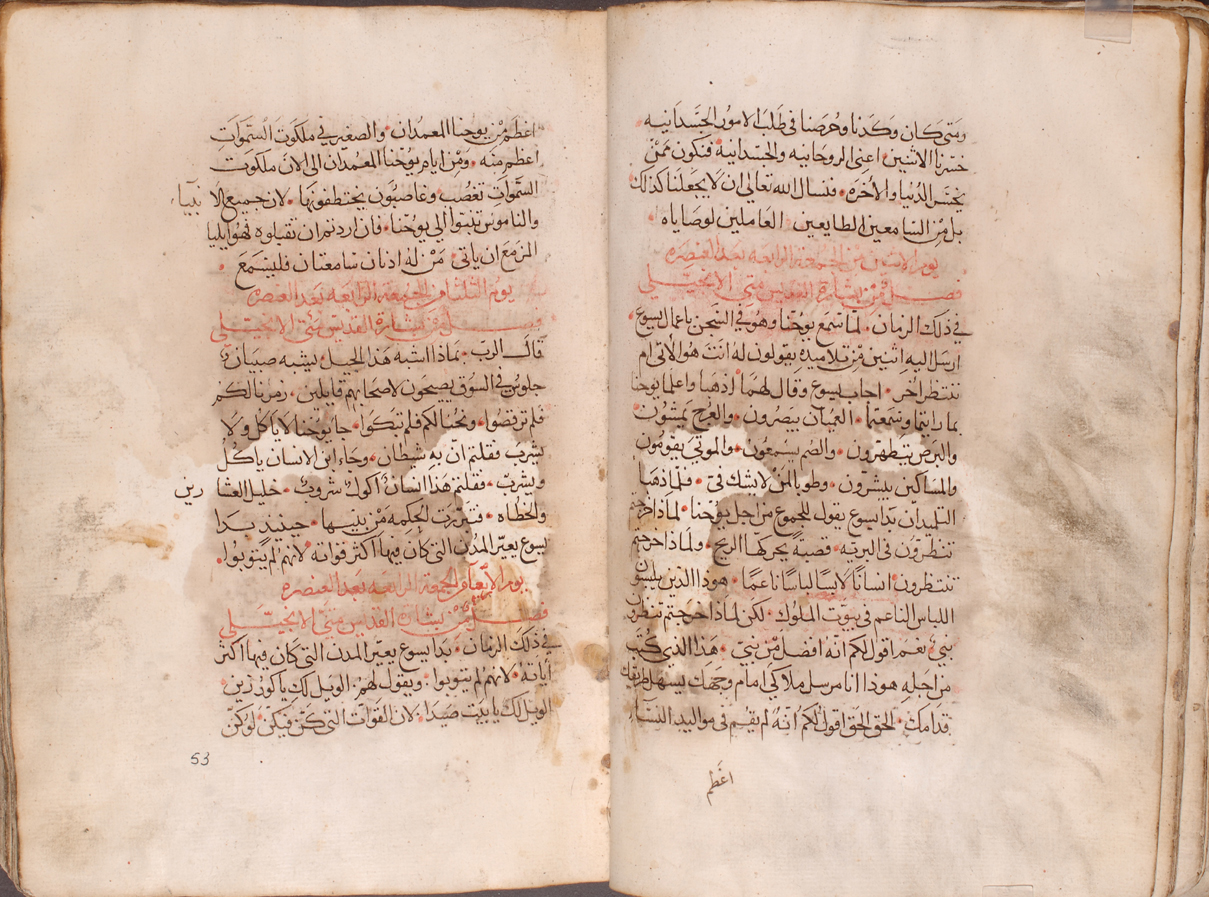 ومتى كان وكدنا وحرصنا فى طلب الامور الجسدانيه
خسرنا الاثنين اعنى الروحانيه والجسدانيه فنكون ممن
يخسر الدنيا والاخره • فنسال الله تعالى ان لا يجعلنا كذلك
بل من السامعين الطايعين العاملين لوصاياه •
يوم الاثنين من الجمعة الرابعه بعد العنصره
فصل من بشارة القديس متى الانجيلى
فى ذلك الزمان • لما سمع يوحنا وهو فى السجن باعمال يسوع
ارسل اليه اثنين من تلاميذه يقولون له انت هو الاتى ام
ننتظر اخر • اجاب يسوع وقال لهما اذهبا واعلما يوحنا
بما رايتما وسمعتما • العميان يبصرون • والعرج يمشون •
والبرص يتطهرون • والصم يسمعون • والموتى يقومون
والمساكين يبشرون • وطوبا لمن لا يشك فى • فلما ذهبا
التلميذان بدا يسوع يقول للجموع من اجل يوحنا • لماذا خرجتم
تنظرون فى البريه • قصبة يحركها الريح • ولماذا خرجتم
تنتظرون انسانا لابسا لباسا ناعما • هوذا الذين يلبسو
اللباس الناعم فى بيوت الملوك • لكن لماذا خرجتم تنظرون
نبى نعم اقول لكم انه افضل من نبى • هذا الذى كتب
من اجله هوذا انا مرسل ملاكى امام وجهك يسهل طريقك
قدامك • الحق الحق اقول لكم انه لم يقم فى مواليد النسا
اعظم
اعظم من يوحنا المعمدان • والصغير فى ملكوت السموات
اعظم منه • ومن ايام يوحنا المعمدان الى الان ملكوت
السموات تغصب وغاصبون يختطفونها • لان جميع الا نبيا
والناموس تنبوا الى يوحنا • فان اردتم ان تقبلوه فهو ايليا
المزمع ان ياتى • من له اذنان سامعتان فليسمع •
يوم الثلثا من الجمعة الرابعه بعد العنصره
فصل من بشارة القديس متى الانجيلى
قال الرب • بماذا اشبه هذا الجيل يشبه صبيان
جلوس فى السوق يصيحون لاصحابهم قايلين • زمرنا لكم
فلم ترقصوا • ونحنا لكم فلم تبكوا • جا يوحنا لا ياكل ولا
يشرب فقلتم ان به شيطان • وجاء ابن الانسان ياكل
ويشرب • فقلتم هذا انسان اكول شروب • خليل العشا رين
والخطاه • فتبررت الحكمه من بنيها • حينيد بدا
يسوع يعير المدن التى كان فيها اكثر قواته لانهم لم يتوبوا •
يوم الاربعا من الجمعة الرابعه بعد العنصره
فصل من بشارة القديس متى الانجيلى
فى ذلك الزمان • بدا يسوع يعير المدن التى كان فيها اكثر
اياته • لانهم لم يتوبوا • ويقول لهم • الويل لك يا كورزين •
الويل لك يا بيت صيدا • لان القوات التى كن فيكن • لو كن
53